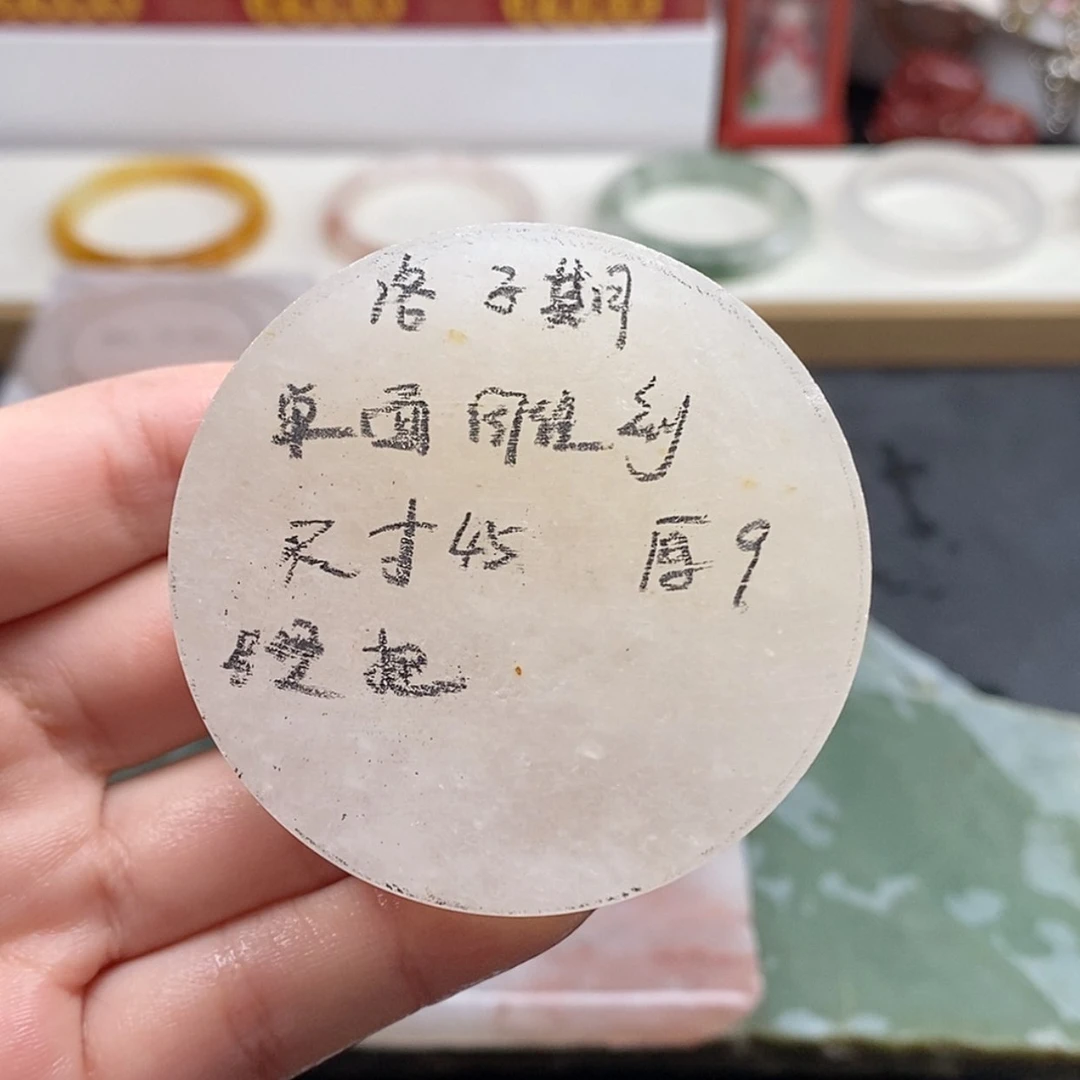 洛子期
单面雕刻
尺寸45 厚9